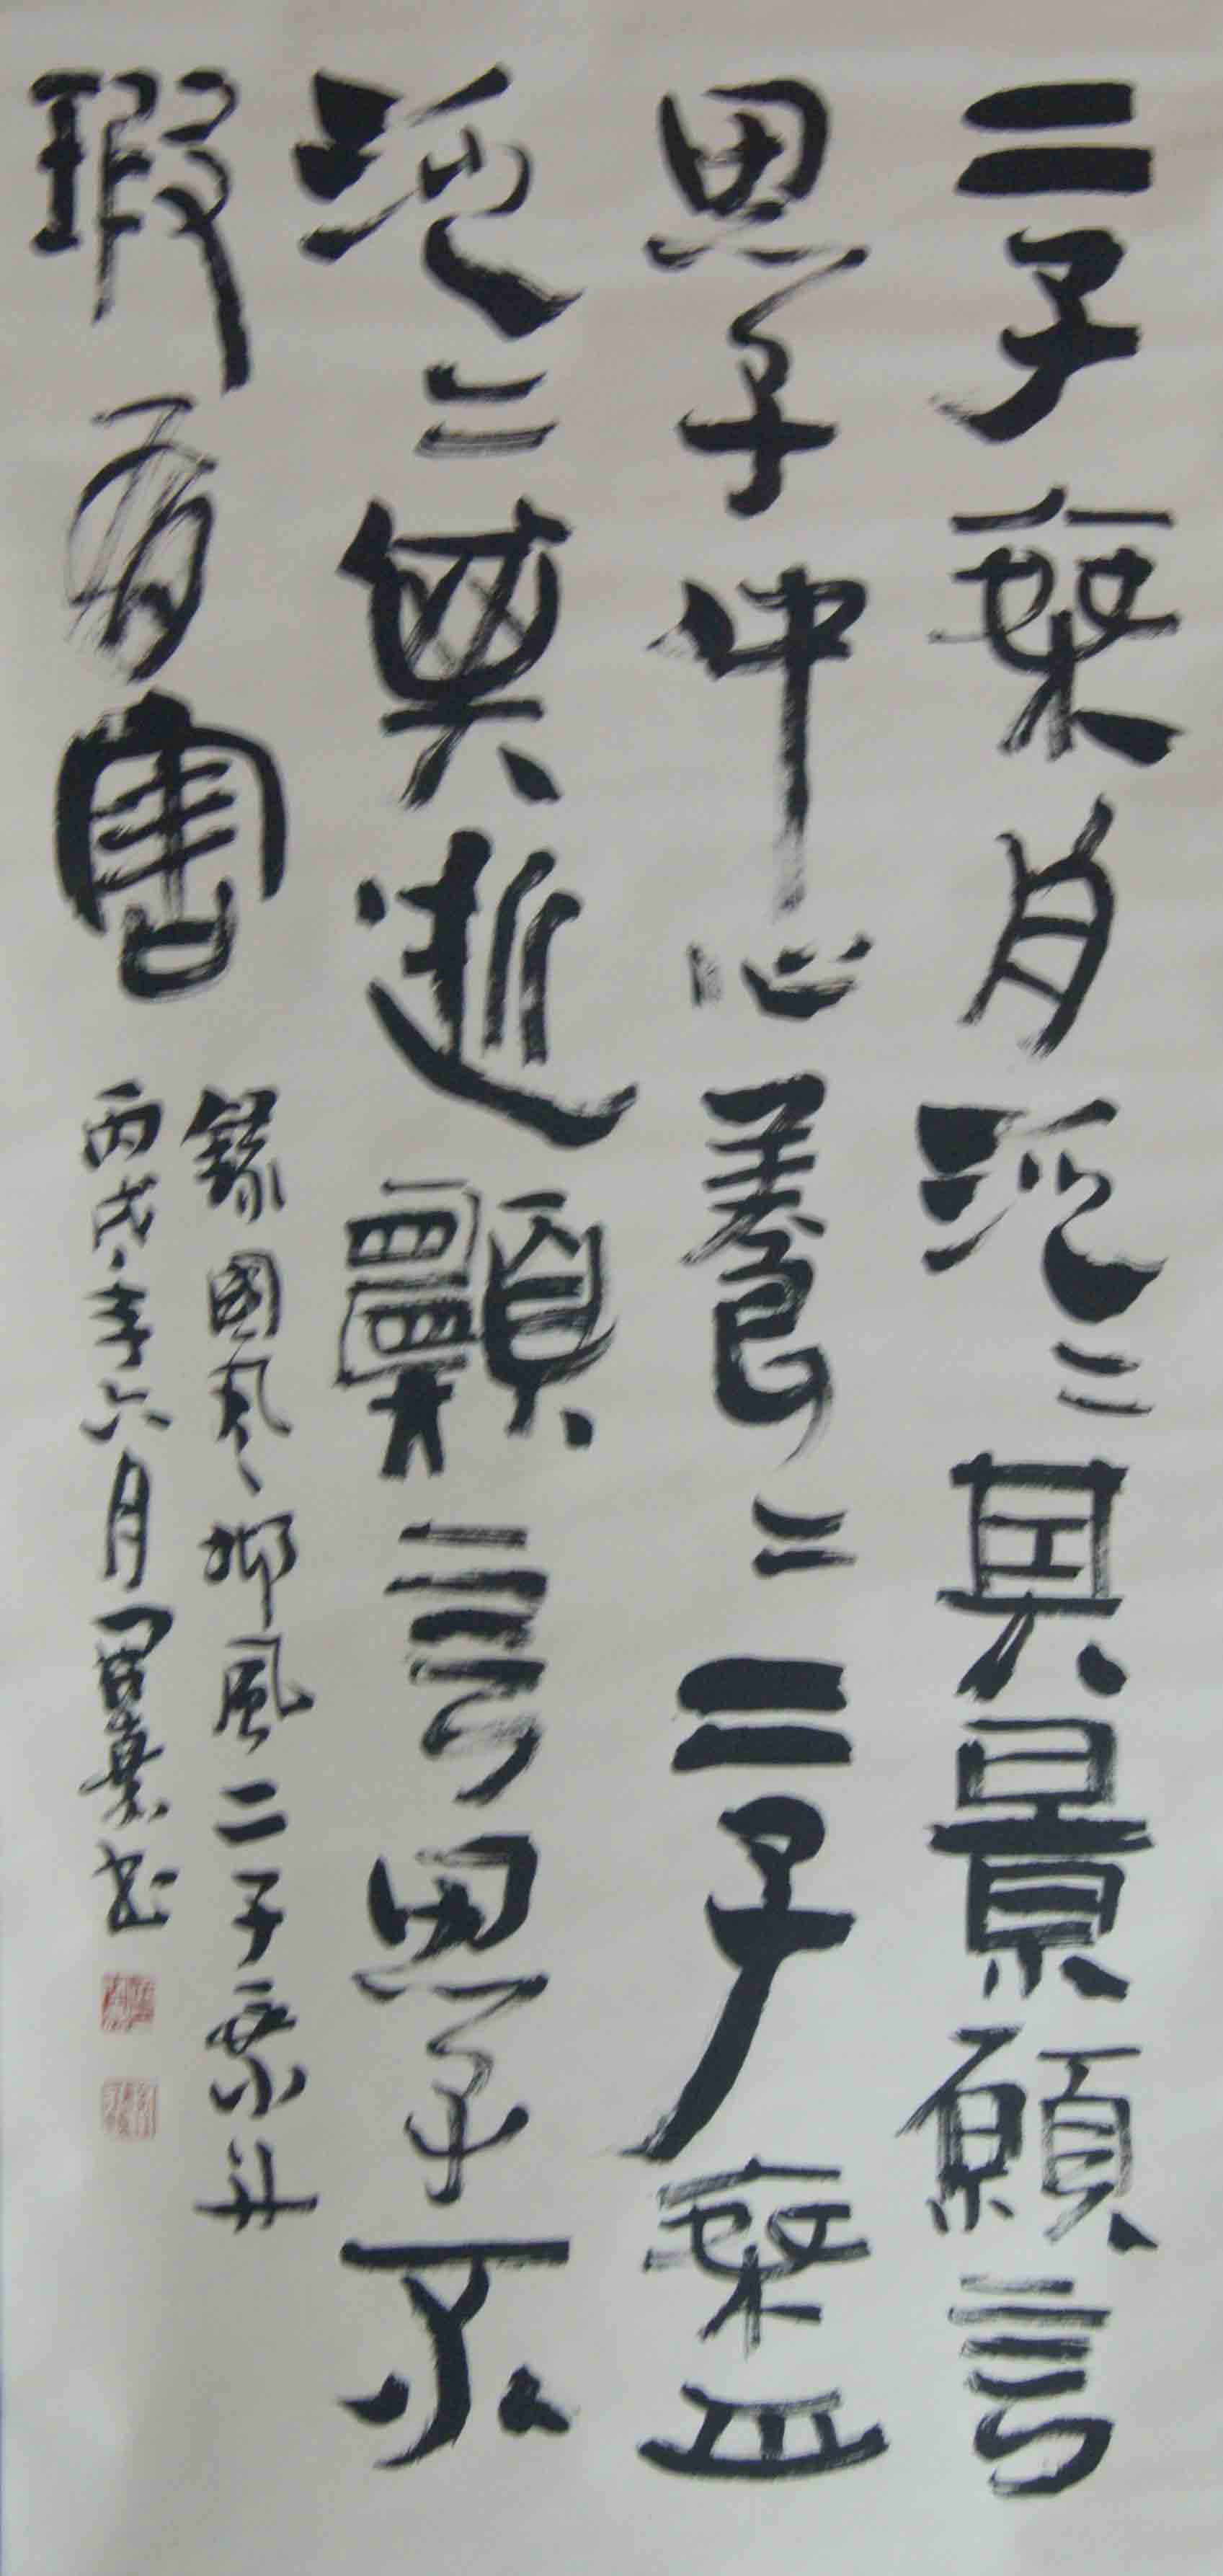 二子乘舟泛々其景願言
思子中心養々二子乘舟
泛々其逝願言思子不
瑕有害
錄國風邶風二子乘舟
丙戌年六月書